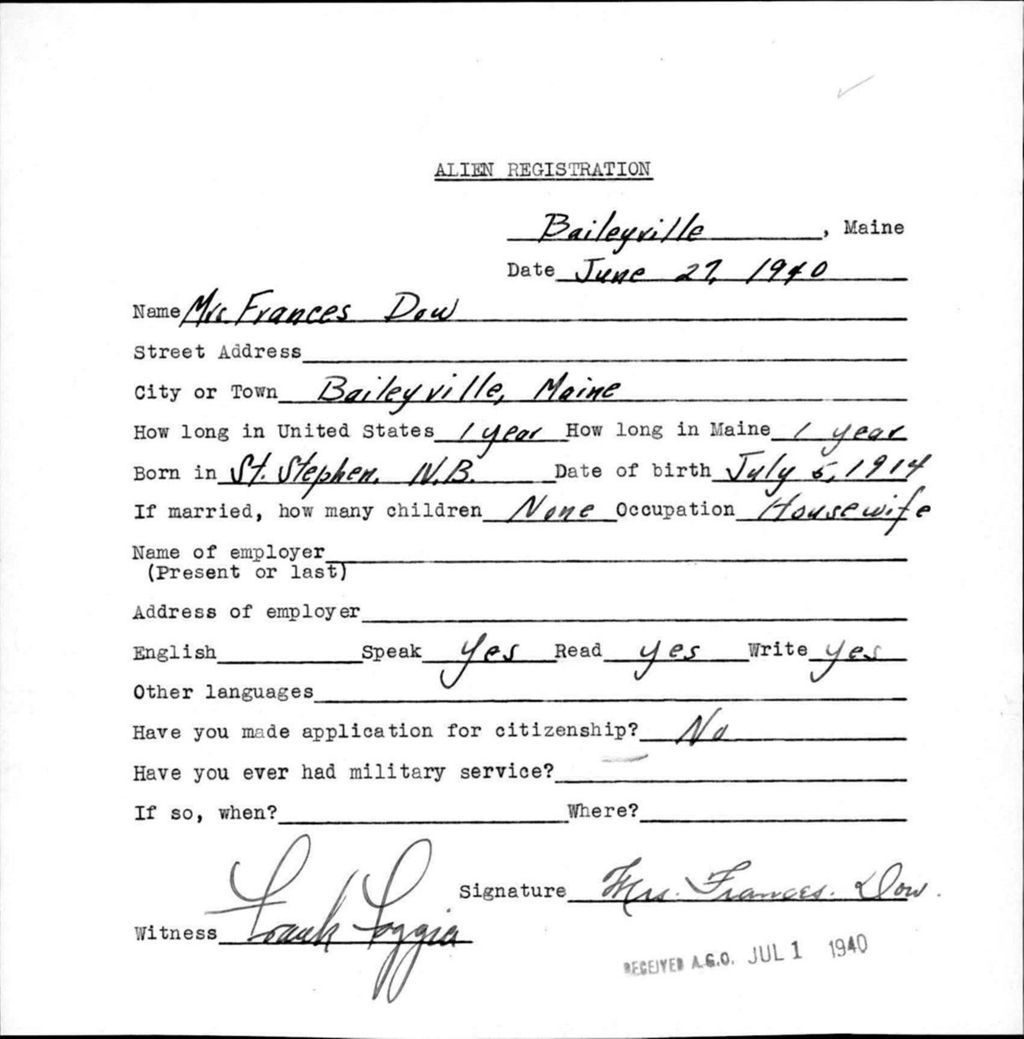 ALIEN REGISTRATION
Baileyville, Maine
Date June 27, 1940
Name Mrs. Frances Dow
Street Address
City or Town Baileyville, Maine
How long in United States 1 year How long in Maine 1 year
Born in St. Stephen, N.B. Date of birth July 5, 1914
If married, how many children None Occupation Housewife
Name of employer
(Present or last)
Address of employer
English Speak Yes Read yes Write yes
Other languages
Have you made application for citizenship? No
Have you ever had military service?
If so, when? Where?
Signature Mrs. Frances. Dow.
Witness Frank Loggia
RECEIVED A.G.O. JUL 1 1940